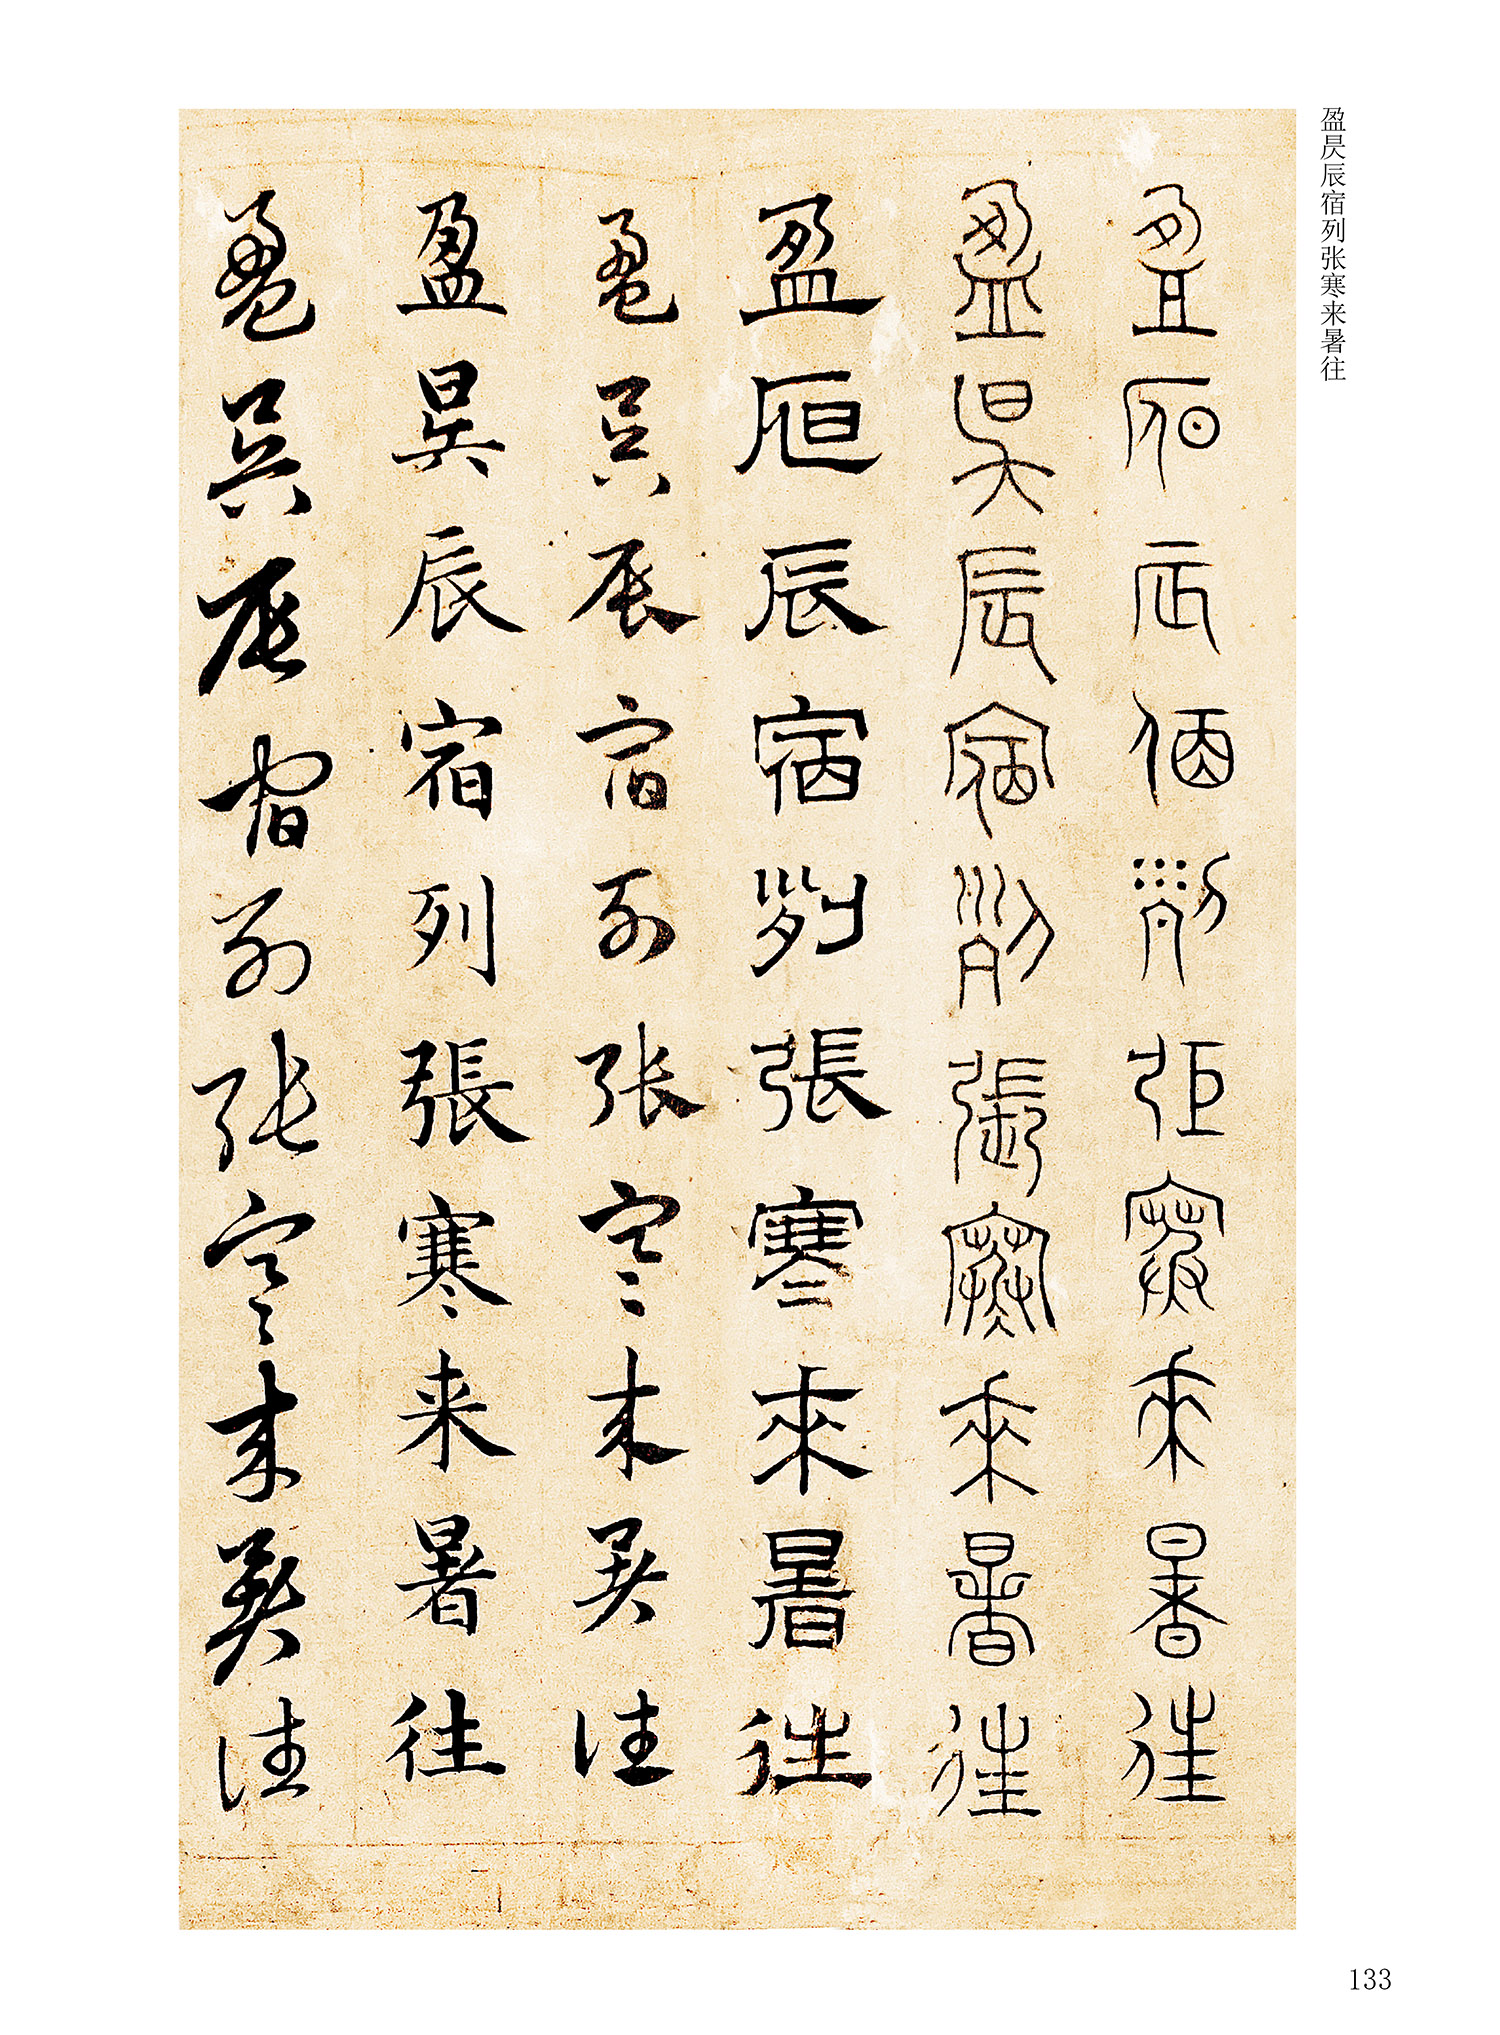 盈昃辰宿列张寒来暑往
盈昃辰宿列張寒來暑往
盈昃辰宿列張寒來暑往
盈昃辰宿列張寒來暑往
盈昃辰宿列张寒来暑往
盈昃辰宿列張寒来暑往
盈昃辰宿列张寒来暑往
133